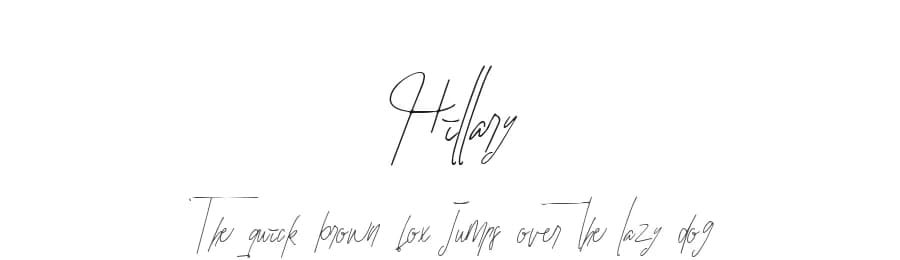 Hillary
The quick brown fox jumps over the lazy dog